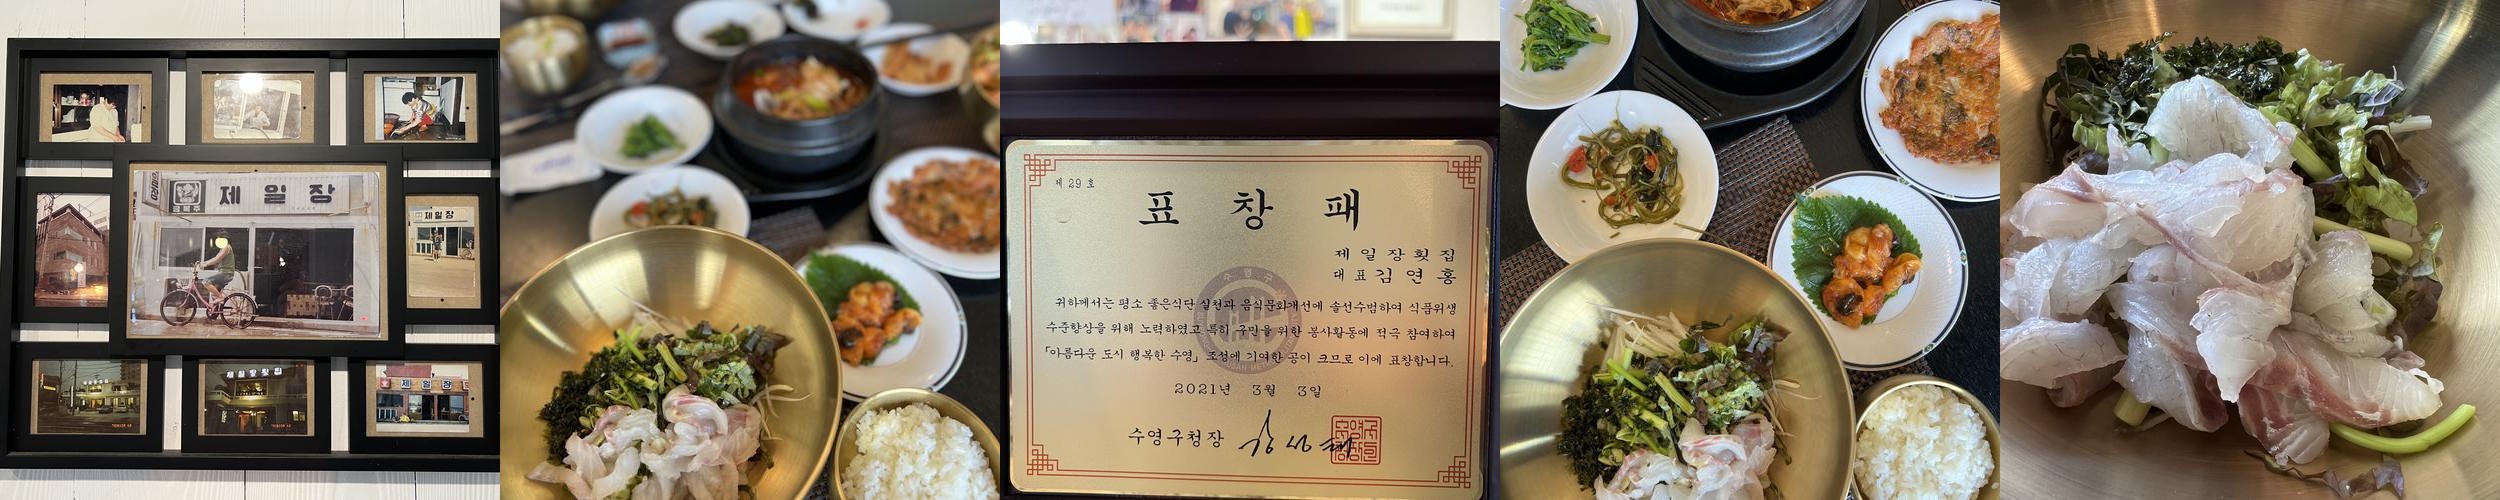 제일장
금복주
제일장
제일장횟집
제일장
제 29 호
표 창 패
제일장횟집
대표 김연홍
귀하께서는 평소 좋은식단 실천과 음식문화개선에 솔선수범하여 식품위생
수준향상을 위해 노력하였고 특히 구민을 위한 봉사활동에 적극 참여하여
「아름다운 도시 행복한 수영」 조성에 기여한 공이 크므로 이에 표창합니다.
2021년 3월 3일
수영구청장